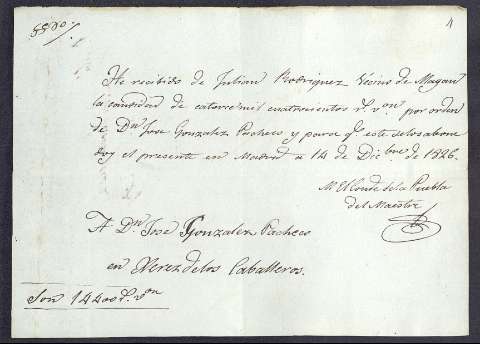 4
He recibido de Julian Rodriguez Vecino de Magan
la cantidad de catorce mil cuatrocientos r.s v.on por orden
de D.n Jose Gonzalez Pacheco y para q.e este se los abone
doy el presente en Madrid a 14 de Dic.bre de 1826.
El Conde de la Puebla
del Maestre
A D.n Jose Gonzalez Pacheco
en Xerez de los Caballeros.
Son 14400 r.s v.on